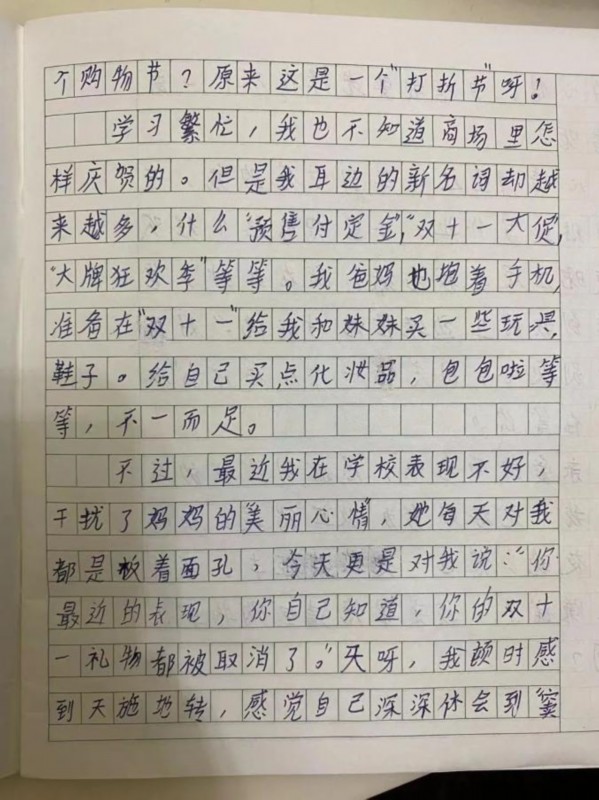 个购物节？原来这是一个“打折节”呀！
学习繁忙，我也不知道商场里怎
样庆贺的。但是我耳边的新名词却越
来越多，什么“预售付定金”，“双十一大促”，
“大牌狂欢季”等等。我爸妈也抱着手机，
准备在“双十一”给我和妹妹买一些玩具，
鞋子。给自己买点化妆品，包包啦等
等，不一而足。
不过，最近我在学校表现不好，
干扰了妈妈的“美丽心情”，她每天对我
都是板着面孔，今天更是对我说：“你
最近的表现，你自己知道，你的双十
一礼物都被取消了。”天呀，我顿时感
到天施地转，感觉自己深深体会到“窦